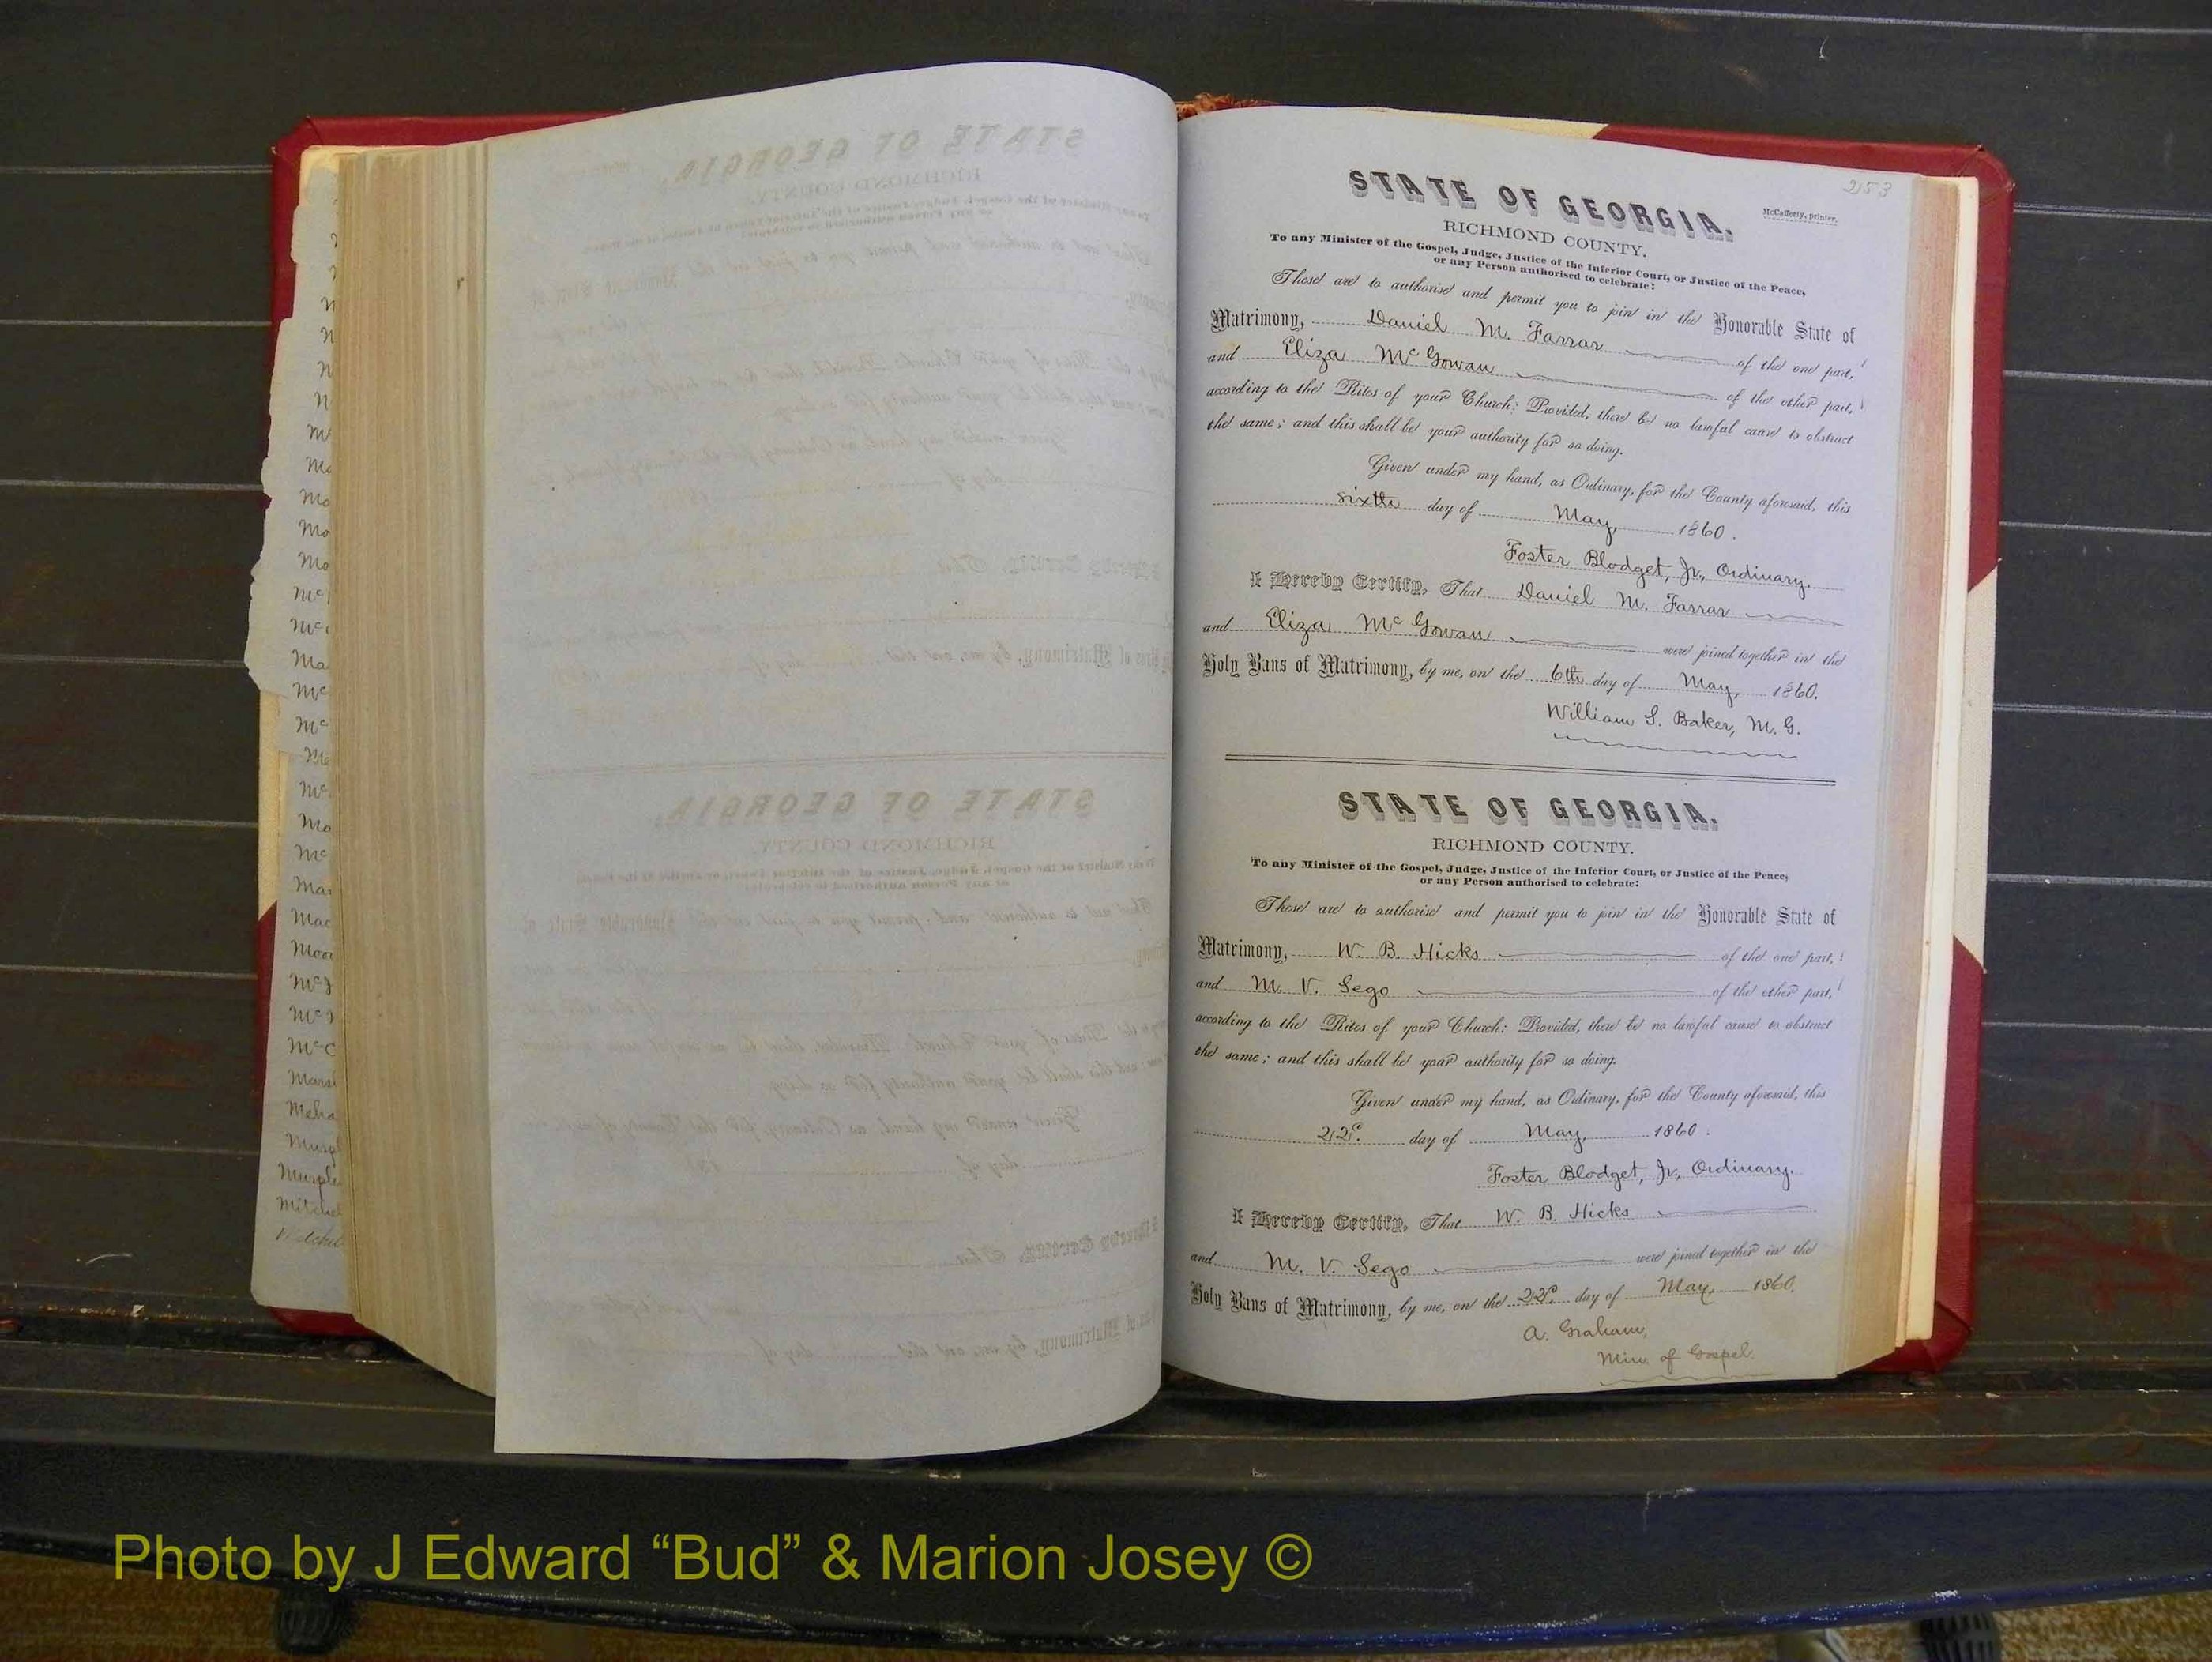 2153
McCafferty, printer.
STATE OF GEORGIA.
RICHMOND COUNTY.
To any Minister of the Gospel, Judge, Justice of the Inferior Court, or Justice of the Peace,
or any Person authorised to celebrate:
These are to authorise and permit you to join in the Honorable State of
Matrimony, Daniel M. Farrar of the one part,
and Eliza McGowan of the other part,
according to the Rites of your Church: Provided, there be no lawful cause to obstruct
the same; and this shall be your authority for so doing.
Given under my hand, as Ordinary, for the County aforesaid, this
sixth day of May, 1860.
Foster Blodget, Jr, Ordinary.
I Hereby Certify, That Daniel M. Farrar
and Eliza McGowan were joined together in the
Holy Bans of Matrimony, by me, on the 6th day of May, 1860.
William S. Baker, M. G.
STATE OF GEORGIA.
RICHMOND COUNTY.
To any Minister of the Gospel, Judge, Justice of the Inferior Court, or Justice of the Peace,
or any Person authorised to celebrate:
These are to authorise and permit you to join in the Honorable State of
Matrimony, W. B. Hicks of the one part,
and M. V. Sego of the other part,
according to the Rites of your Church: Provided, there be no lawful cause to obstruct
the same; and this shall be your authority for so doing.
Given under my hand, as Ordinary, for the County aforesaid, this
22d. day of May, 1860.
Foster Blodget, Jr, Ordinary.
I Hereby Certify, That W. B. Hicks
and M. V. Sego were joined together in the
Holy Bans of Matrimony, by me, on the 22d. day of May, 1860.
A. Graham,
Min. of Gospel.
Photo by J Edward “Bud” & Marion Josey ©